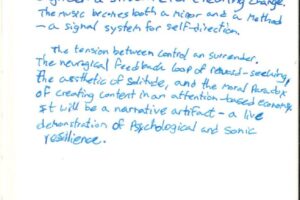 The music becomes both a mirror and a method
- a signal system for self-direction.
The tension between control an surrender.
The neurogical feedback loop of reward-seeking,
the aesthetic of Solitude, and the Moral Paradox
of creating content in an attention-based economy.
It will be a narrative artifact - a live
demonstration of Psychological and Sonic
resilience.